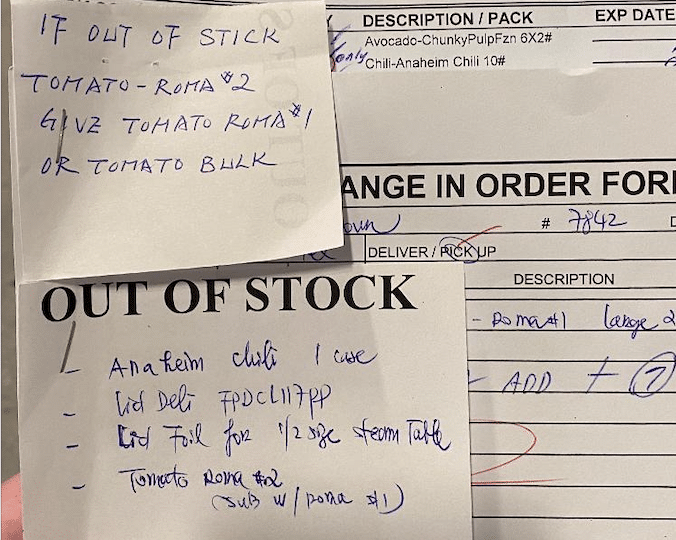 IF OUT OF STICK
TOMATO - ROMA #2
GIVE TOMATO ROMA #1
OR TOMATO BULK
DESCRIPTION / PACK EXP DATE
Avocado-ChunkyPulpFzn 6X2#
only Chili-Anaheim Chili 10#
ANGE IN ORDER FOR
# 7842
DELIVER / PICK UP
DESCRIPTION
- Roma #1 large 2
ADD + 2
OUT OF STOCK
- Anaheim chili 1 case
- Lid Deli FPDCL117PP
- Lid Foil for 1/2 size steam Table
- Tomato Roma #2
(sub w/ roma #1)